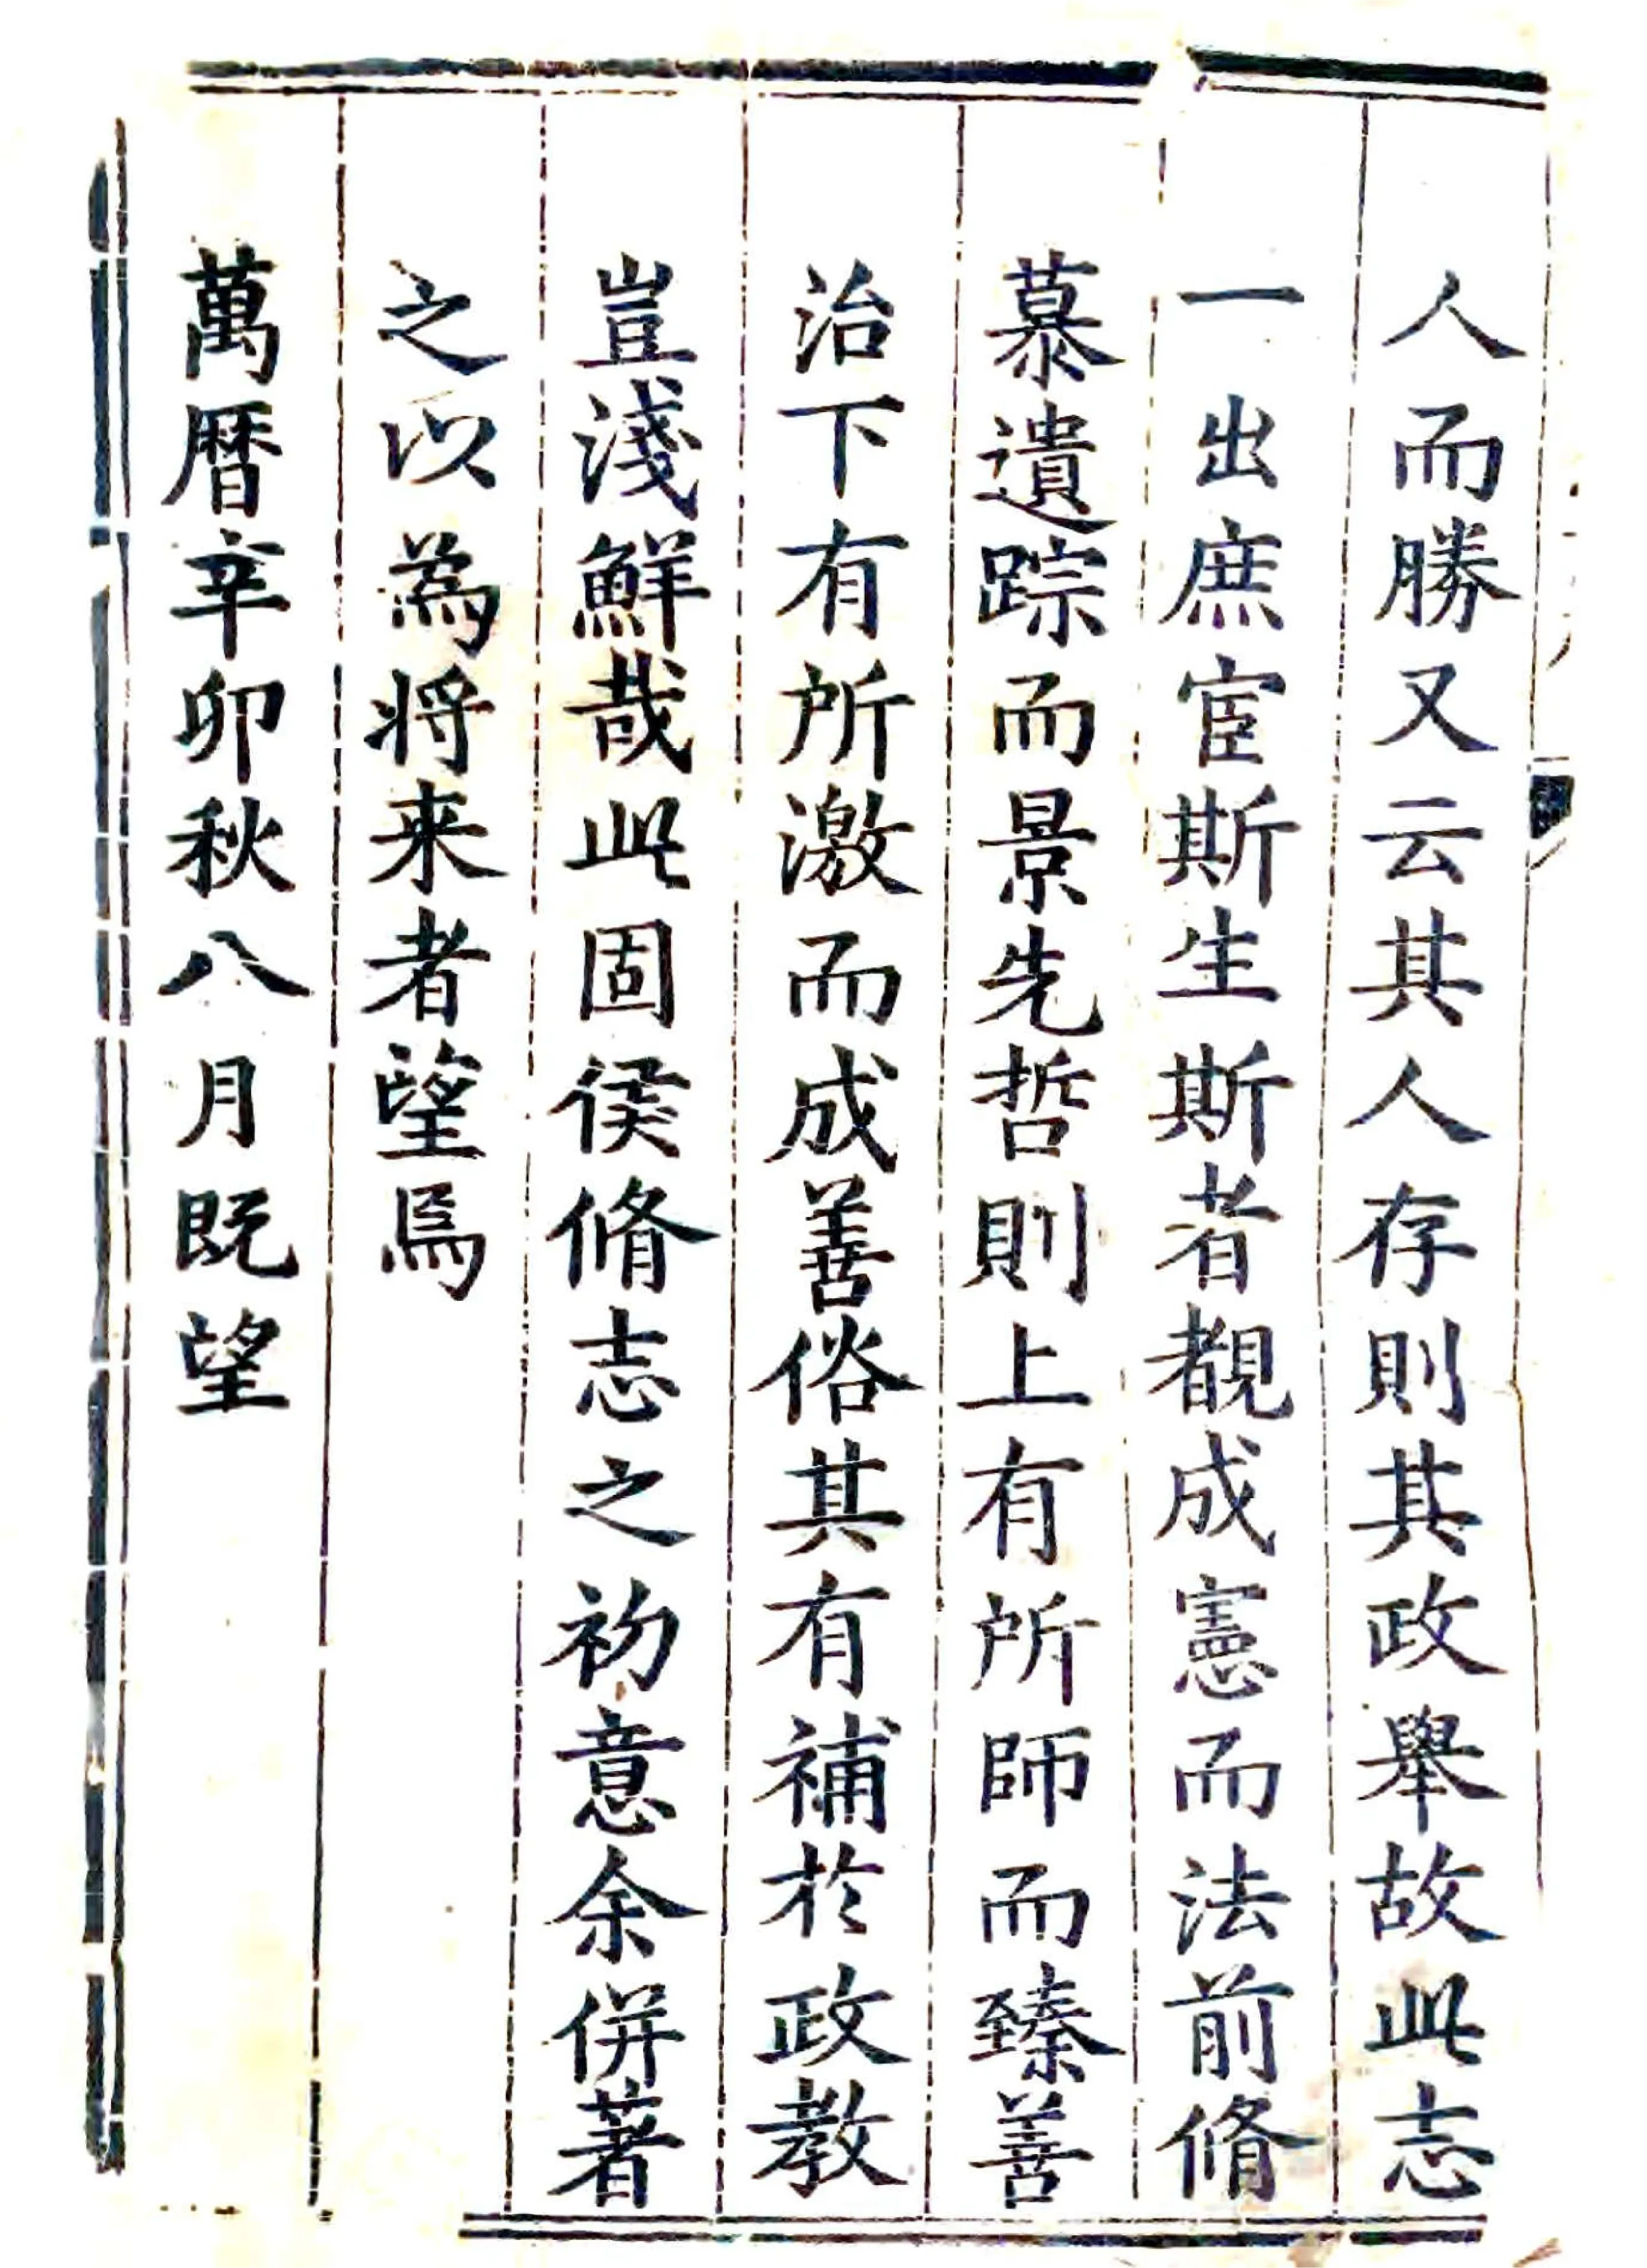 人而勝又云其人存則其政舉故此志
一出庶宦斯生斯者覩成憲而法前脩
慕遺踪而景先哲則上有所師而臻善
治下有所激而成善俗其有補於政教
豈淺鮮哉此固侯脩志之初意余併著
之以為將来者望焉
萬曆辛卯秋八月既望